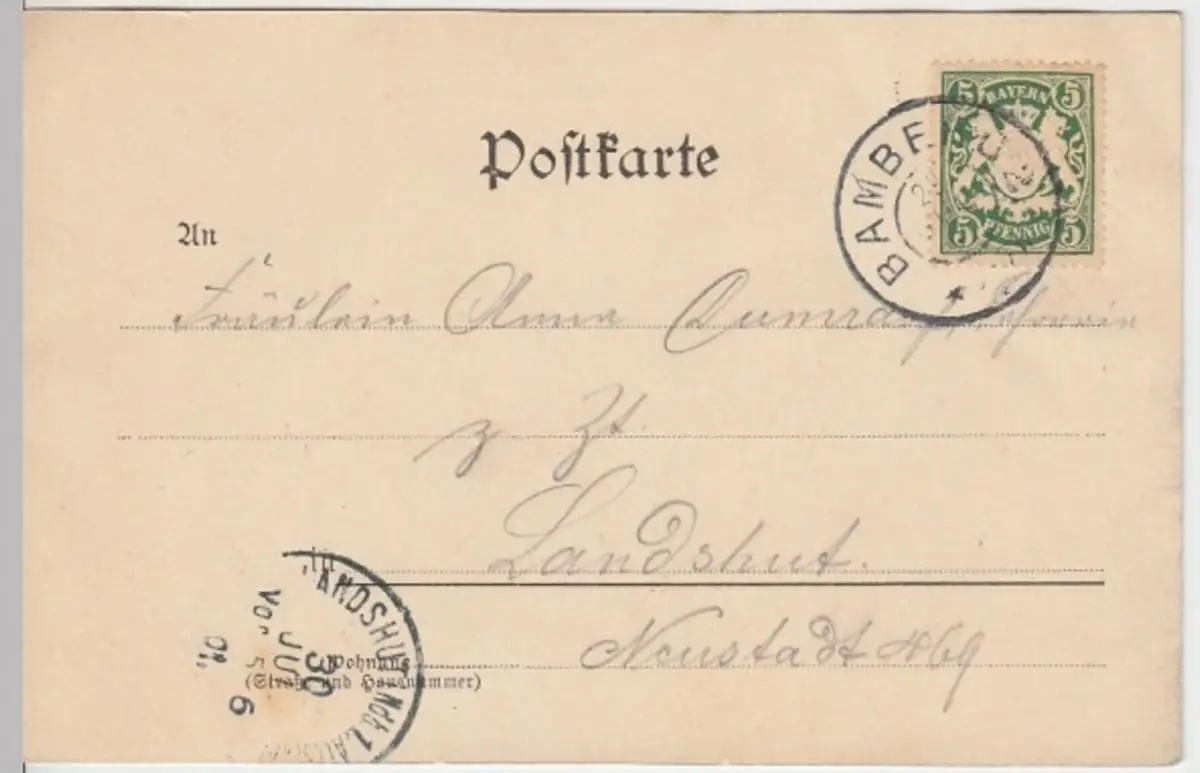 5 BAYERN 5
5 PFENNIG 5
BAMBE
Postkarte
An
Fräulein Anna
z Zt.
Landshut.
Neustadt 469
Wohnung
(Straße und Hausnummer)
LANDSHUT
Vor
30
6